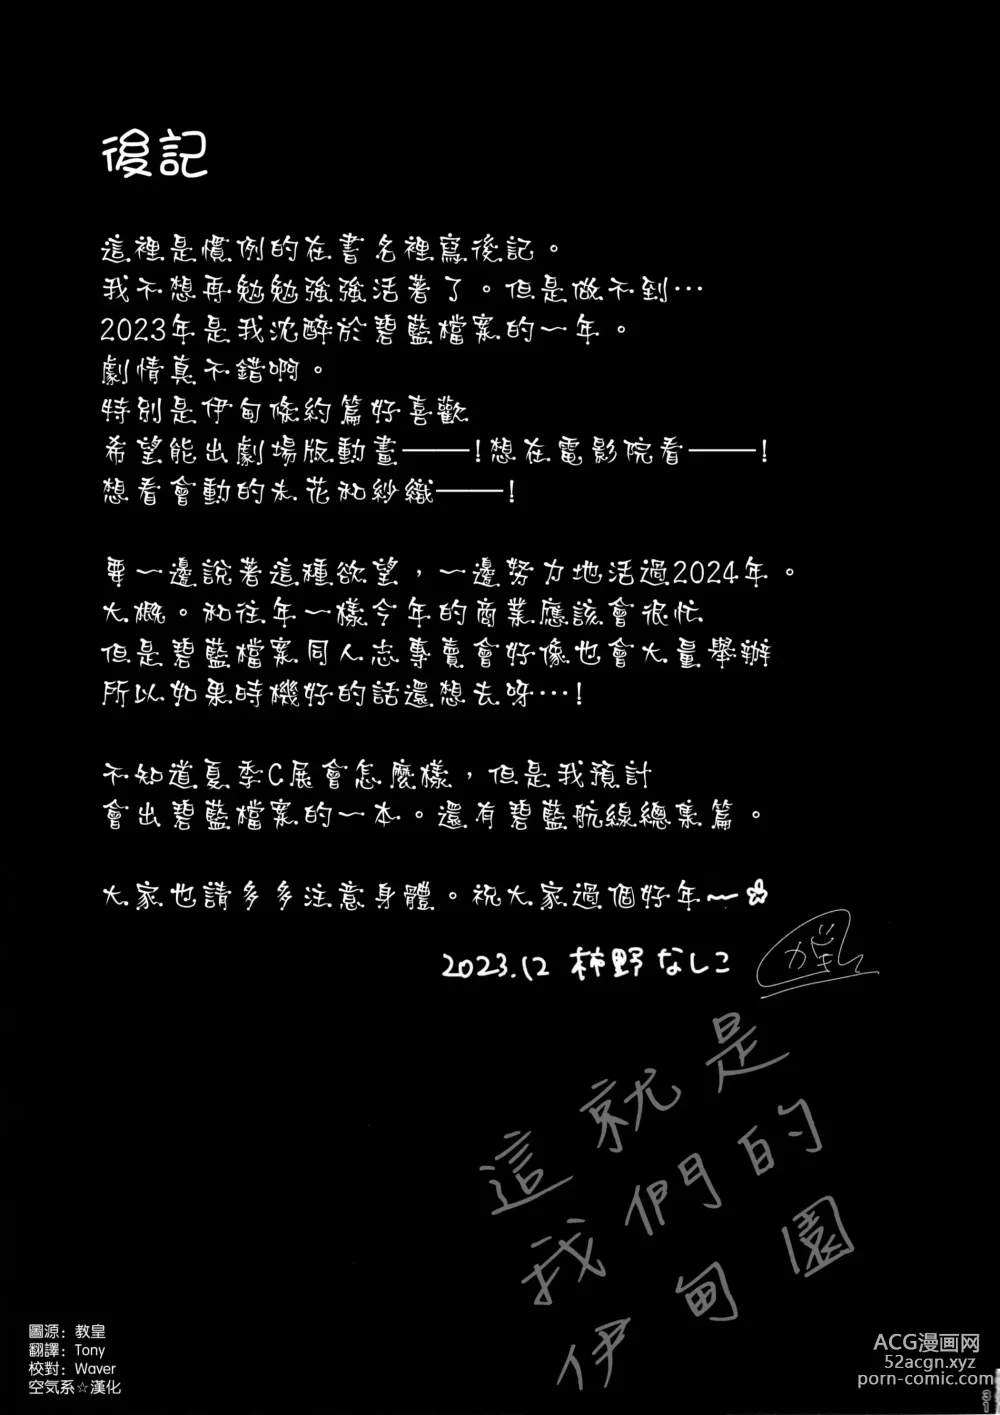 後記
這裡是慣例的在書名裡寫後記。
我不想再勉勉強強活著了。但是做不到…
2023年是我沈醉於碧藍檔案的一年。
劇情真不錯啊。
特別是伊甸條約篇好喜歡
希望能出劇場版動畫———!想在電影院看———!
想看會動的未花和紗織———!
要一邊說著這種欲望，一邊努力地活過2024年。
大概。和往年一樣今年的商業應該會很忙
但是碧藍檔案同人志專賣會好像也會大量舉辦
所以如果時機好的話還想去呀…!
不知道夏季C展會怎麼樣，但是我預計
會出碧藍檔案的一本。還有碧藍航線總集篇。
大家也請多多注意身體。祝大家過個好年~
2023.12 柿野なしこ
這就是
我們的
伊甸園
圖源：教皇
翻譯：Tony
校對：Waver
空気系☆漢化
ACG漫画网
52acgn.xyz
porn-comic.com
31